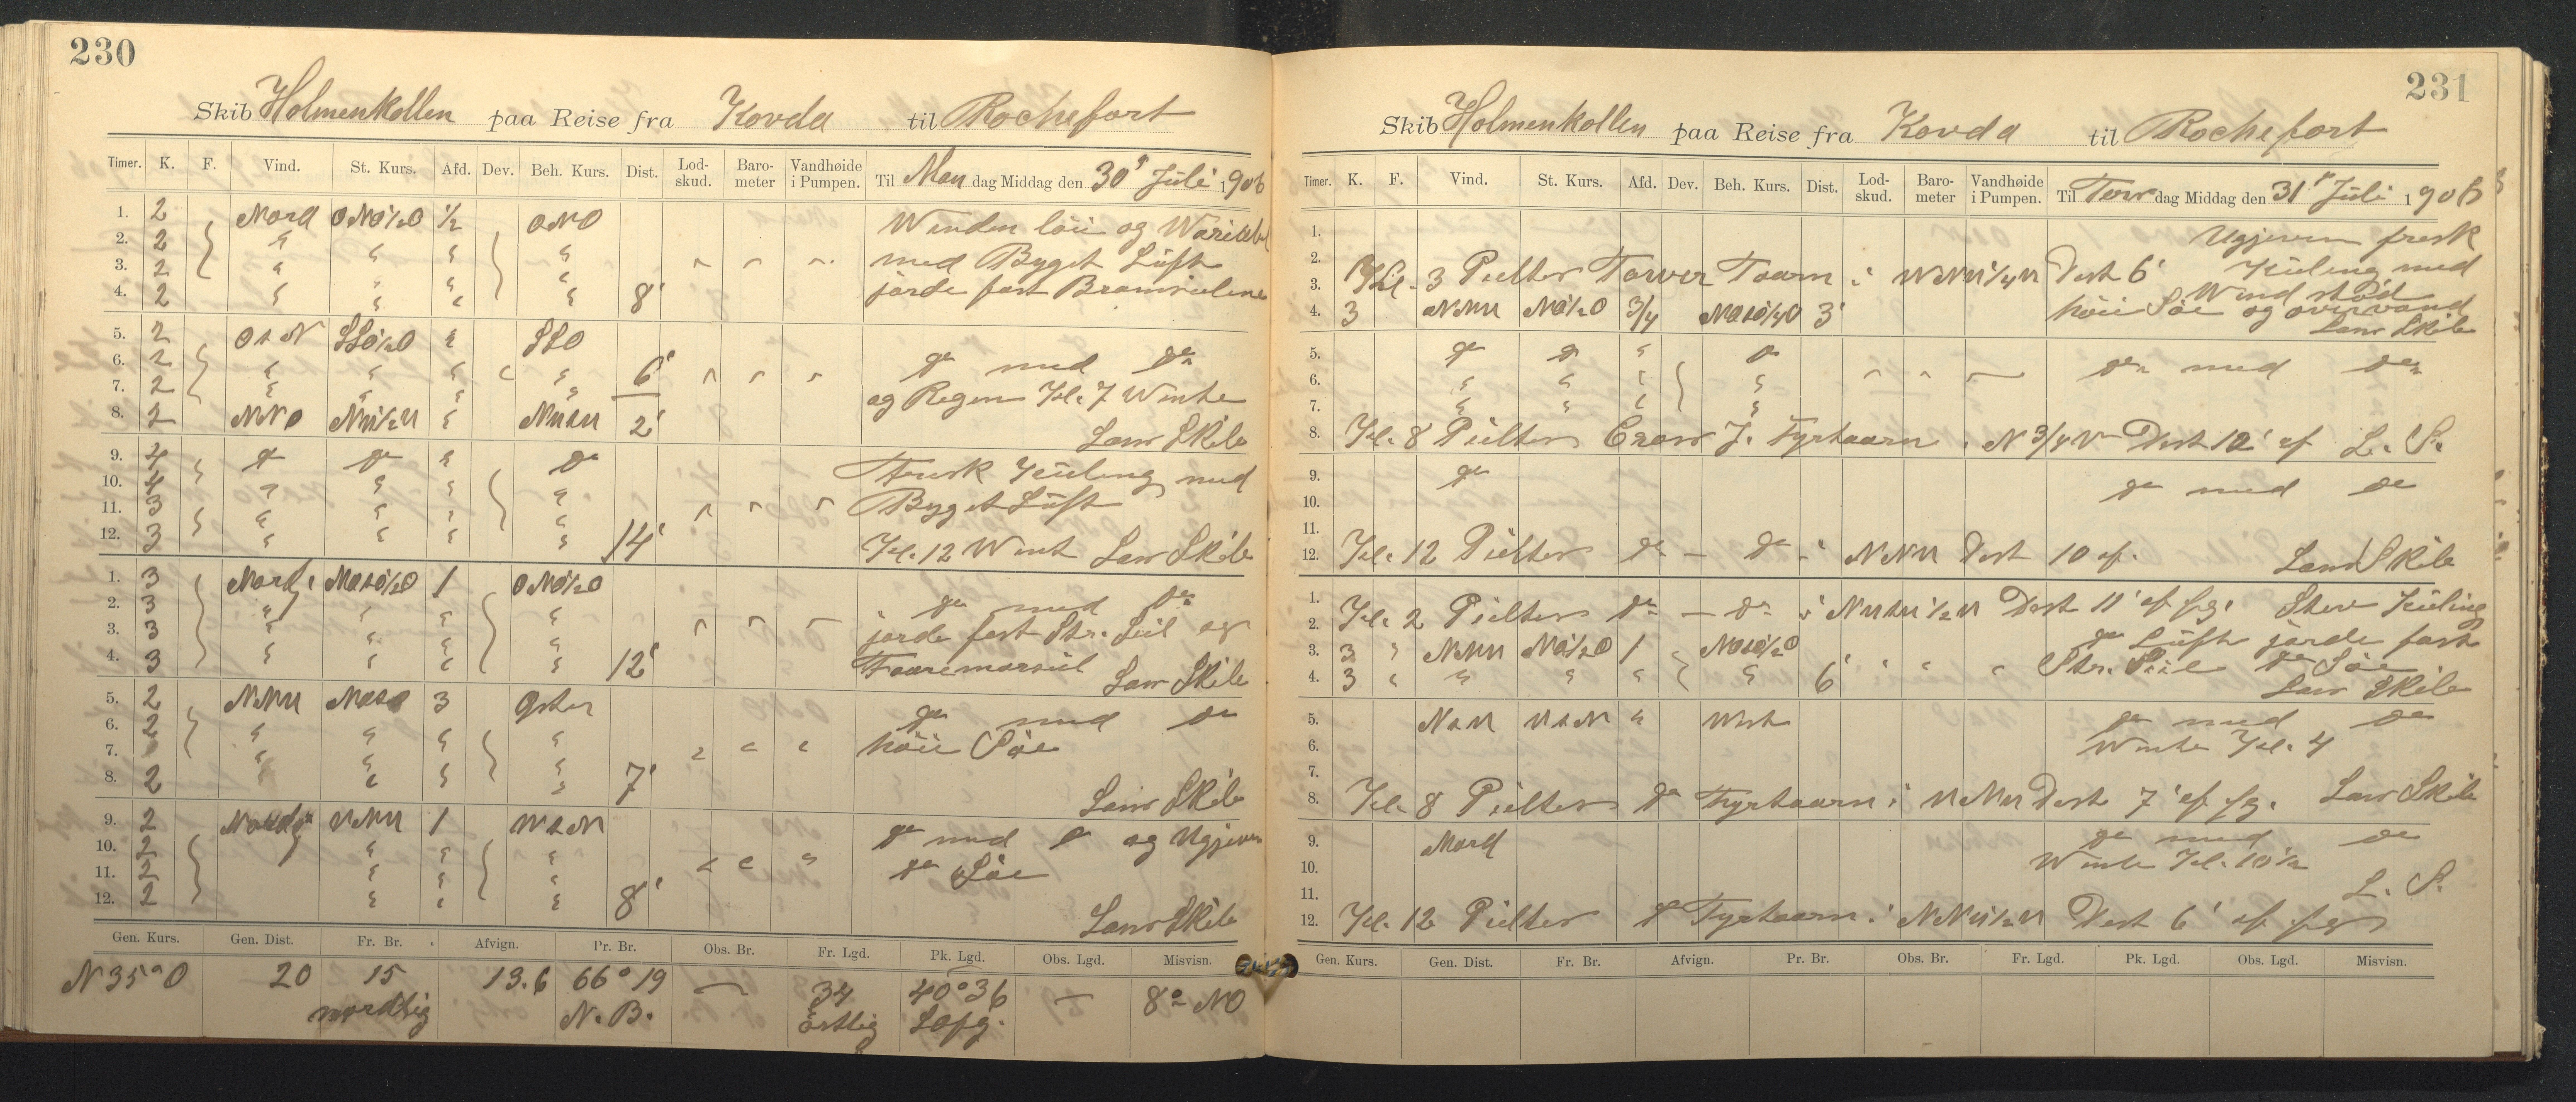 230
Skib Holmenkollen paa Reise fra Kovda til Rochefort
Timer. K. F. Vind. St. Kurs. Afd. Dev. Beh. Kurs. Dist. Lod-skud. Baro-meter Vandhøide i Pumpen. Til Man dag Middag den 30' Juli 1906
1. 2 Nord ONO½O ½ ONO Winden löie og
2. 2 " " " "
3. 2 " " " " med Byget Luft
4. 2 " " " " 8' jorde fast Bramseilene
5. 2 OtN SSO½O " SSO
6. 2 " " " " 6' do med do
7. 2 " " " " og Regen Kl. 7 Wente
8. 2 NNO NW½W " NWtW 2' Lans Skib
9. 4 do do " do Frisk Kuling med
10. 4 " " " " Byget Luft
11. 3 " " " "
12. 3 " " " " 14' Kl. 12 Went Lans Skib
1. 3 Nordl NOtO½O 1 ONO½O
2. 3 " " " " do med do
3. 3 " " " " jorde fast Str. Seil og
4. 3 " " " " 12' Lans Skib
5. 2 NNW NOtO 3 Oster
6. 2 " " " " do med do
7. " " " " höie Söe
8. 2 " " " " 7' Lans Skib
9. 2 Nordl WNW 1 WtN
10. 2 " " " do med do og Ugjeven
11. 2 " " " do Söe
12. 2 " " " 8' Lans Skib
Gen. Kurs. Gen. Dist. Fr. Br. Afvign. Pr. Br. Obs. Br. Fr. Lgd. Pk. Lgd. Obs. Lgd. Misvisn.
N 35° O 20 15 13.6 66° 19 — 34 40° 36 — 8° NO
nordlig N. B. östlig
231
Skib Holmenkollen paa Reise fra Kovda til Rochefort
Timer. K. F. Vind. St. Kurs. Afd. Dev. Beh. Kurs. Dist. Lod-skud. Baro-meter Vandhøide i Pumpen. Til dag Middag den 31' Juli 1906
1. Ugjeven fresk
2. Kuling med
3. Kl. 3 Peilter Taarn i Dest 6' Wind stöd
4. 3 NNW NO½O ¾ 3' höie Söe og overvand
Lans Skib
5. do do " do
6. " " " " do med do
7. " " " "
8. Kl. 8 Peilter Fyrtaarn i N ¾ Dest 12' af L. S.
9. do
10. do med do
11.
12. Kl. 12 Peilter do — do i NNW Dest 10 af. Lans Skib
1.
2. Kl. 2 Peilter do — do i Dest 11' af fg. Kuling
3. 3 " NNW NO½O 1 NOtO½O do Luft jorde fast
4. 3 " " " " " 6' Str. Seil do Söe
Lans Skib
5. NtW WtN " West do med do
6. Wente Kl. 4
7.
8. Kl. 8 Peilter do Fyrtaarn i WNW Dest 7' af fg. Lans Skib
9. Nord do med do
10. Wente Kl. 10½
11. L. S.
12. Kl. 12 Peilter do Fyrtaarn i NNW½W Dest 6' af fg
Gen. Kurs. Gen. Dist. Fr. Br. Afvign. Pr. Br. Obs. Br. Fr. Lgd. Pk. Lgd. Obs. Lgd. Misvisn.